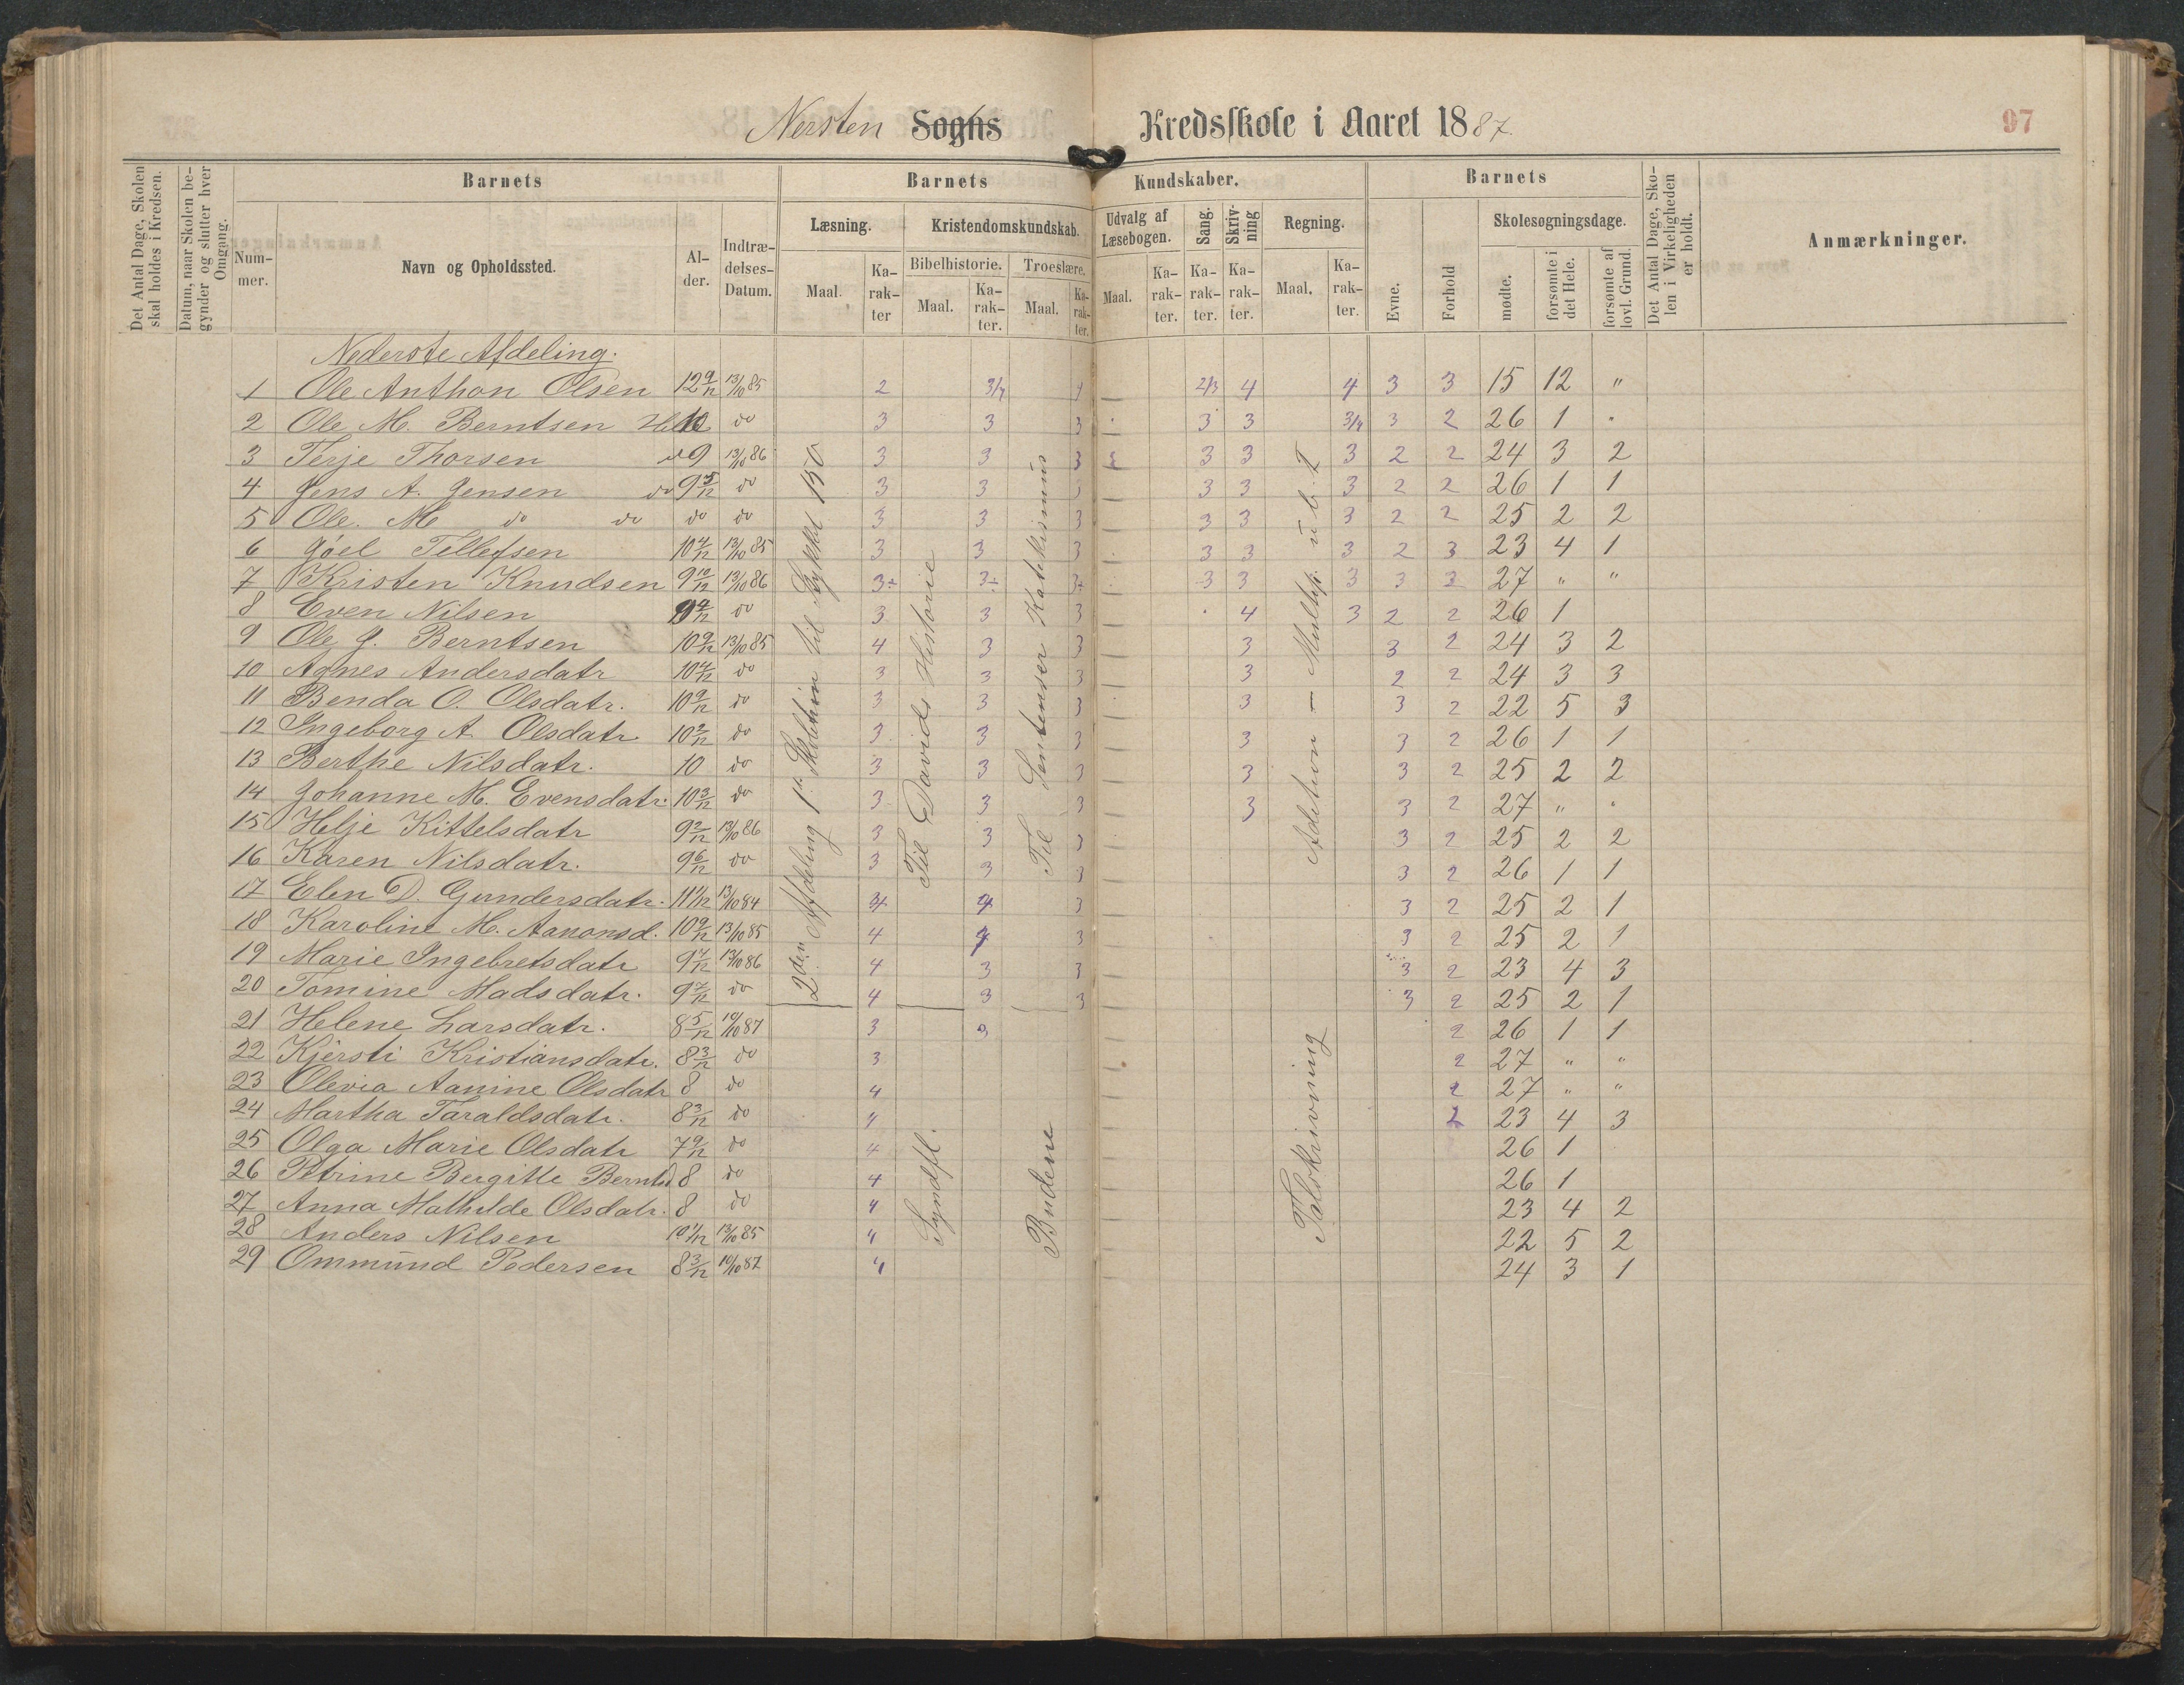 Nersten Sogns Kredsskole i Aaret 1887. 97
Det Antal Dage, Skolen skal holdes i Kredsen.
Datum, naar Skolen begynder og slutter hver Omgang.
Barnets Barnets Kundskaber. Barnets
Nummer. Navn og Opholdssted. Alder. Indtrædelses-Datum.
Læsning. Maal. Karakter
Kristendomskundskab. Bibelhistorie. Maal. Karakter. Troeslære. Maal. Karakter.
Udvalg af Læsebogen. Maal. Karakter.
Sang. Karakter. Skrivning Karakter.
Regning. Maal. Karakter.
Evne. Forhold
Skolesøgningsdage. mødte. forsømte i det Hele. forsømte af lovl. Grund.
Det Antal Dage, Skolen i Virkeligheden er holdt.
Anmærkninger.
Nederste Afdeling.
1 Ole Anthon Olsen 12 9/12 13/10 85 2 3/4 4 2/3 4 4 3 3 15 12 "
2 Ole M. Berntsen 10 do 3 3 3 3 3 3/4 3 2 26 1 "
3 Terje Thorsen do 9 13/10 86 3 3 3 3 3 3 2 2 24 3 2
4 Jens A. Jensen do 9 5/12 do 3 3 3 3 3 3 2 2 26 1 1
5 Ole. M do do do do 3 3 3 3 3 3 2 2 25 2 2
6 Joel Tellefsen 10 4/12 13/10 85 3 3 3 3 3 3 2 3 23 4 1
7 Kristen Knudsen 9 10/12 13/10 86 3÷ 3÷ 3÷ 3 3 3 3 3 27 " "
8 Even Nilsen 9 4/12 do 3 3 3 4 3 2 2 26 1
9 Ole J. Berntsen 10 9/12 13/10 85 4 3 3 3 3 2 24 3 2
10 Agnes Andersdatr 10 4/12 do 3 3 3 3 2 2 24 3 3
11 Benda O. Olsdatr. 10 9/12 do 3 3 3 3 3 2 22 5 3
12 Ingeborg A. Olsdatr 10 2/12 do 3 3 3 3 3 2 26 1 1
13 Berthe Nilsdatr. 10 do 3 3 3 3 3 2 25 2 2
14 Johanne M. Evensdatr. 10 3/12 do 3 3 3 3 3 2 27 " "
15 Helje Kittelsdatr 9 2/12 13/10 86 3 3 3 3 2 25 2 2
16 Karen Nilsdatr. 9 6/12 do 3 3 3 3 2 26 1 1
17 Elen D. Gundersdatr. 11 1/12 13/10 84 4 3 3 2 25 2 1
18 Karoline M. Aanonsd. 10 9/12 13/10 85 4 4 3 3 2 25 2 1
19 Marie Ingebretsdatr 9 4/12 13/10 86 4 3 3 3 2 23 4 3
20 Tomine Madsdatr. 9 7/12 do 4 3 3 3 2 25 2 1
21 Helene Larsdatr. 8 5/12 10/10 87 3 3 2 26 1 1
22 Kjersti Kristiansdatr. 8 3/12 do 3 2 27 " "
23 Olevia Aanine Olsdatr 8 do 4 2 27 " "
24 Martha Taraldsdatr. 8 3/12 do 4 2 23 4 3
25 Olga Marie Olsdatr 7 9/12 do 4 26 1
26 Petrine Bergitte Berntsd 8 do 4 26 1
27 Anna Mathilde Olsdatr. 8 do 4 23 4 2
28 Anders Nilsen 10 1/12 13/10 85 4 22 5 2
29 Ommund Pedersen 8 3/12 10/10 87 4 24 3 1
2den Afdeling 1ste Skoletrin til Stykke 150
Til Davids Historie
Til Sentenser Katekismus
Adetion — Multip.
Syndfl.
Budene
Talskrivning